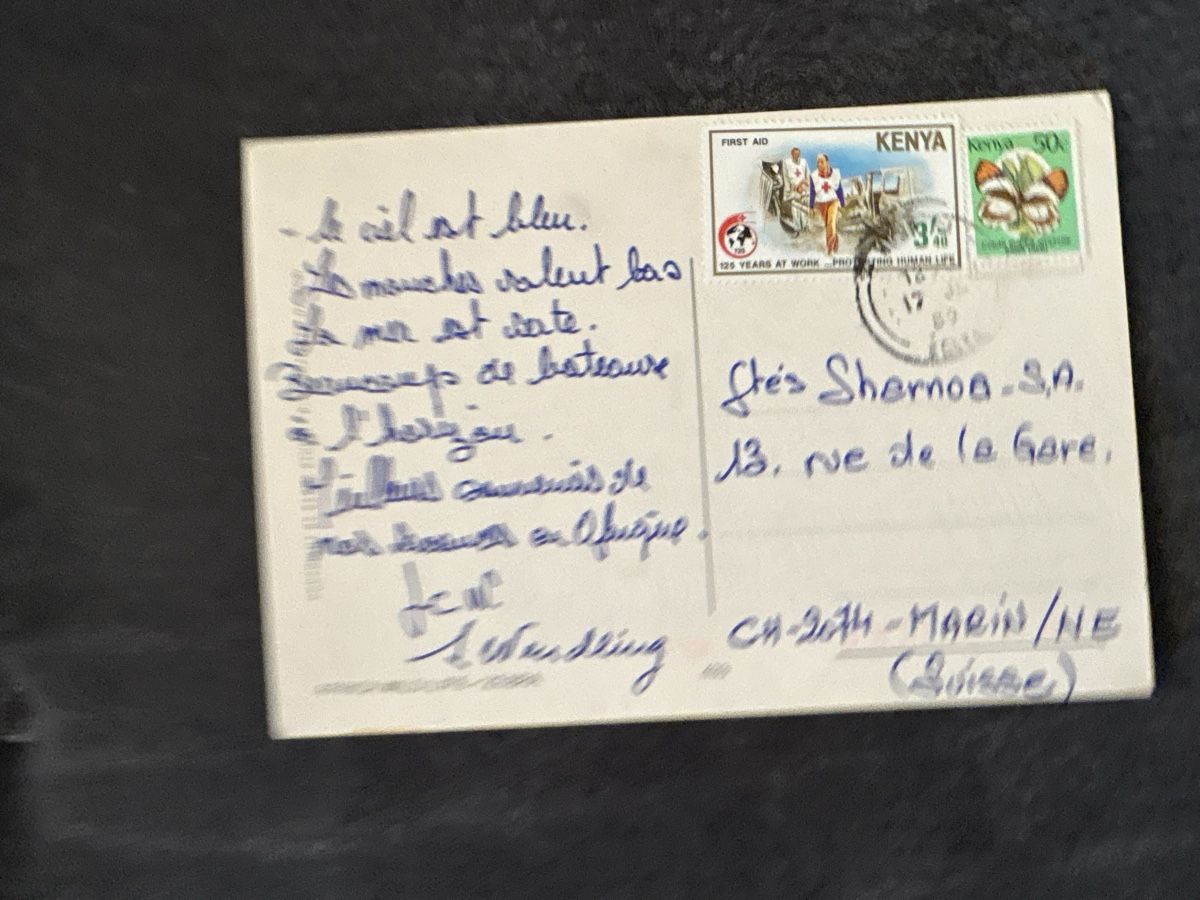 - le ciel est bleu.
Les mouches volent bas
La mer est
Beaucoup de bateaux
à l'horizon.
Meilleurs souvenirs de
nos vacances en Afrique.
Wendling
FIRST AID
KENYA
3/40
125 YEARS AT WORK ...PROTECTING HUMAN LIFE
125
Kenya 50c
17
89
Stés Sharnoa-S.A.
13, rue de la Gare,
CH-2074-MARIN/NE
(Suisse)